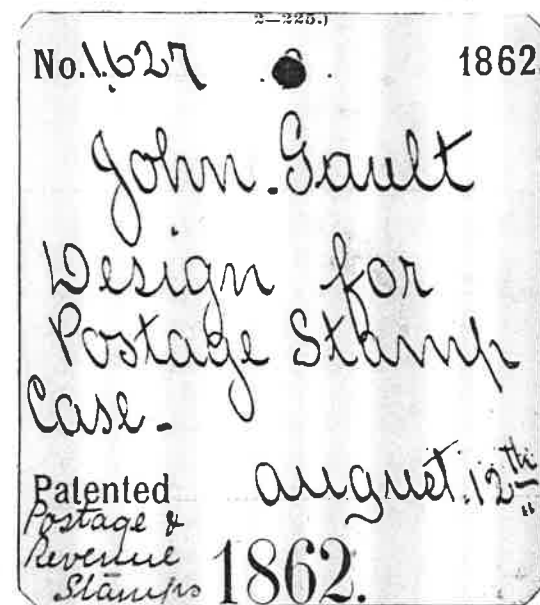 2—225.)
No. 1.627 1862
John. Gault
Design for
Postage Stamp
Case.-
Patented august. 12th
Postage &
Revenue
Stamps 1862.